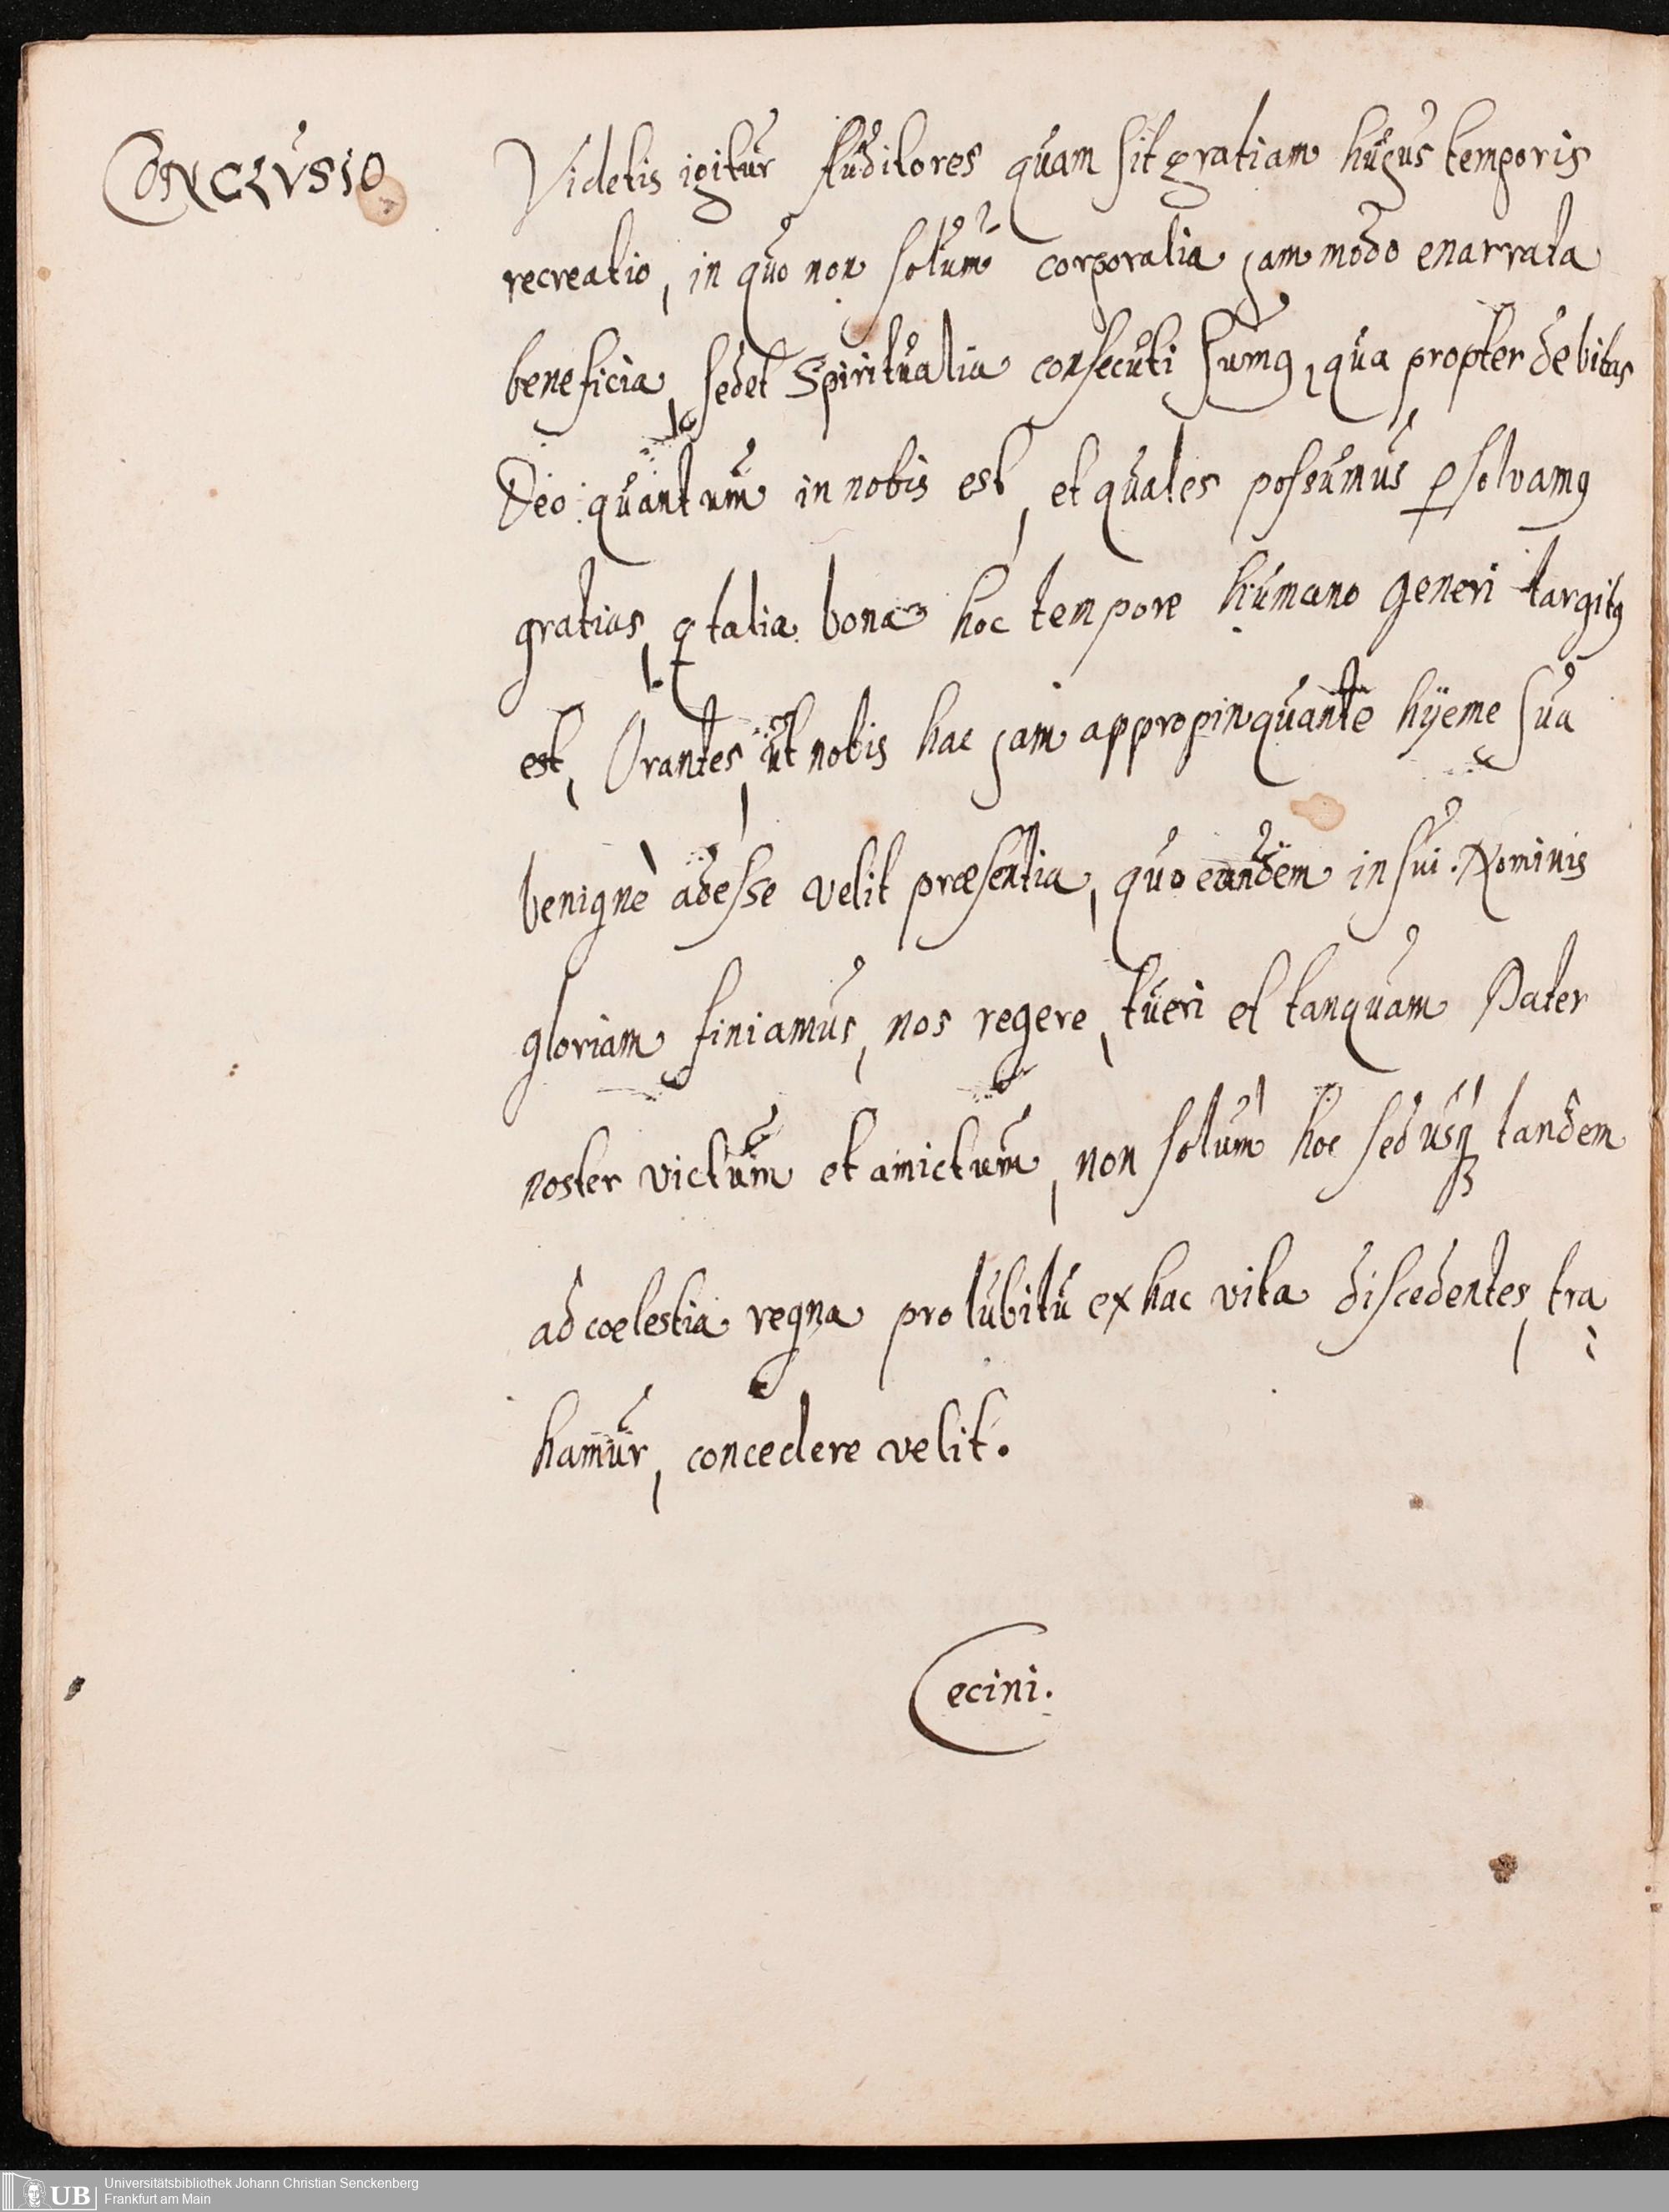 CONCLVSIO
Videtis igitur Auditores quam sit gratiam hujus temporis
recreatio, in quo non solum corporalia jam modo enarrata
beneficia, sed et Spiritualia consecuti sumꝰ, qua propter debitas
Deo quantum in nobis est, et quales possumus ꝑsolvamꝰ
gratias, ꝙ talia bona hoc tempore humano generi largitꝰ
est, Orantes, ut nobis hac jam appropinquante hÿeme sua
benignè adesse velit præsentia, quo eandem in sui Nominis
gloriam finiamus, nos regere, tueri et tanquam Pater
noster victum et amictum, non solum hoc sed usqꝫ tandem
ad coelestia regna pro lubitu ex hac vita discedentes, tra
hamur, concedere velit.
Cecini.
UB Universitätsbibliothek Johann Christian Senckenberg
Frankfurt am Main